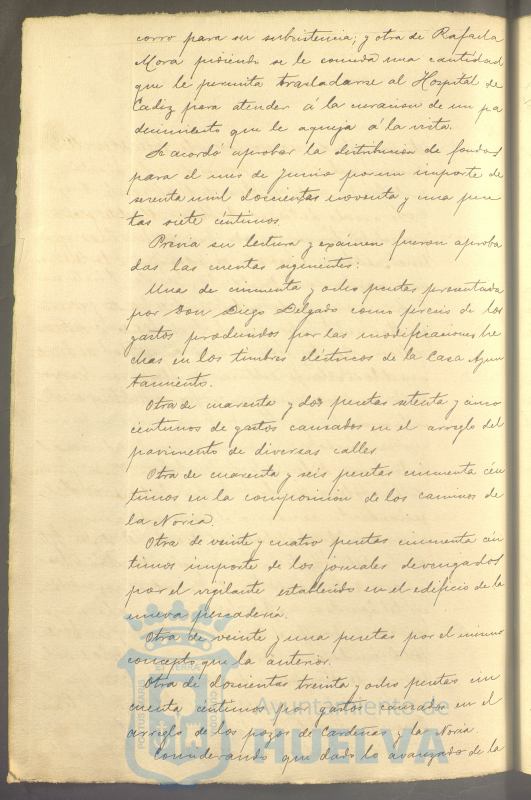 corro para su subsistencia; y otra de Rafaela
Mora pidiendo se le conceda una cantidad
que le permita trasladarse al Hospital de
Cadiz para atender á la curacion de un pa
decimiento que le aqueja á la vista.
Se acordó aprobar la distribucion de fondos
para el mes de Junio por un importe de
setenta mil doscientas noventa y una pese
tas siete céntimos
Prévia su lectura y exámen fueron aproba
das las cuentas siguientes:
Una de cincuenta y ocho pesetas presentada
por Don Diego Delgado como precio de los
gastos producidos por las modificaciones he
chas en los timbres eléctricos de la Casa Ayun
tamiento.
Otra de cuarenta y dos pesetas setenta y cinco
céntimos de gastos causados en el arreglo del
pavimento de diversas calles
Otra de cuarenta y seis pesetas cincuenta cén
timos en la composicion de los caminos de
la Noria.
Otra de veinte y cuatro pesetas cincuenta cén
timos importe de los jornales devengados
por el vigilante establecido en el edificio de la
nueva pescadería.
Otra de veinte y una pesetas por el mismo
concepto que la anterior.
Otra de doscientas treinta y ocho pesetas cin
cuenta céntimos por gastos causados en el
arreglo de los pozos de Cardeñas y la Noria.
Considerando que dado lo avanzado de la
Ayuntamiento de
HUELVA